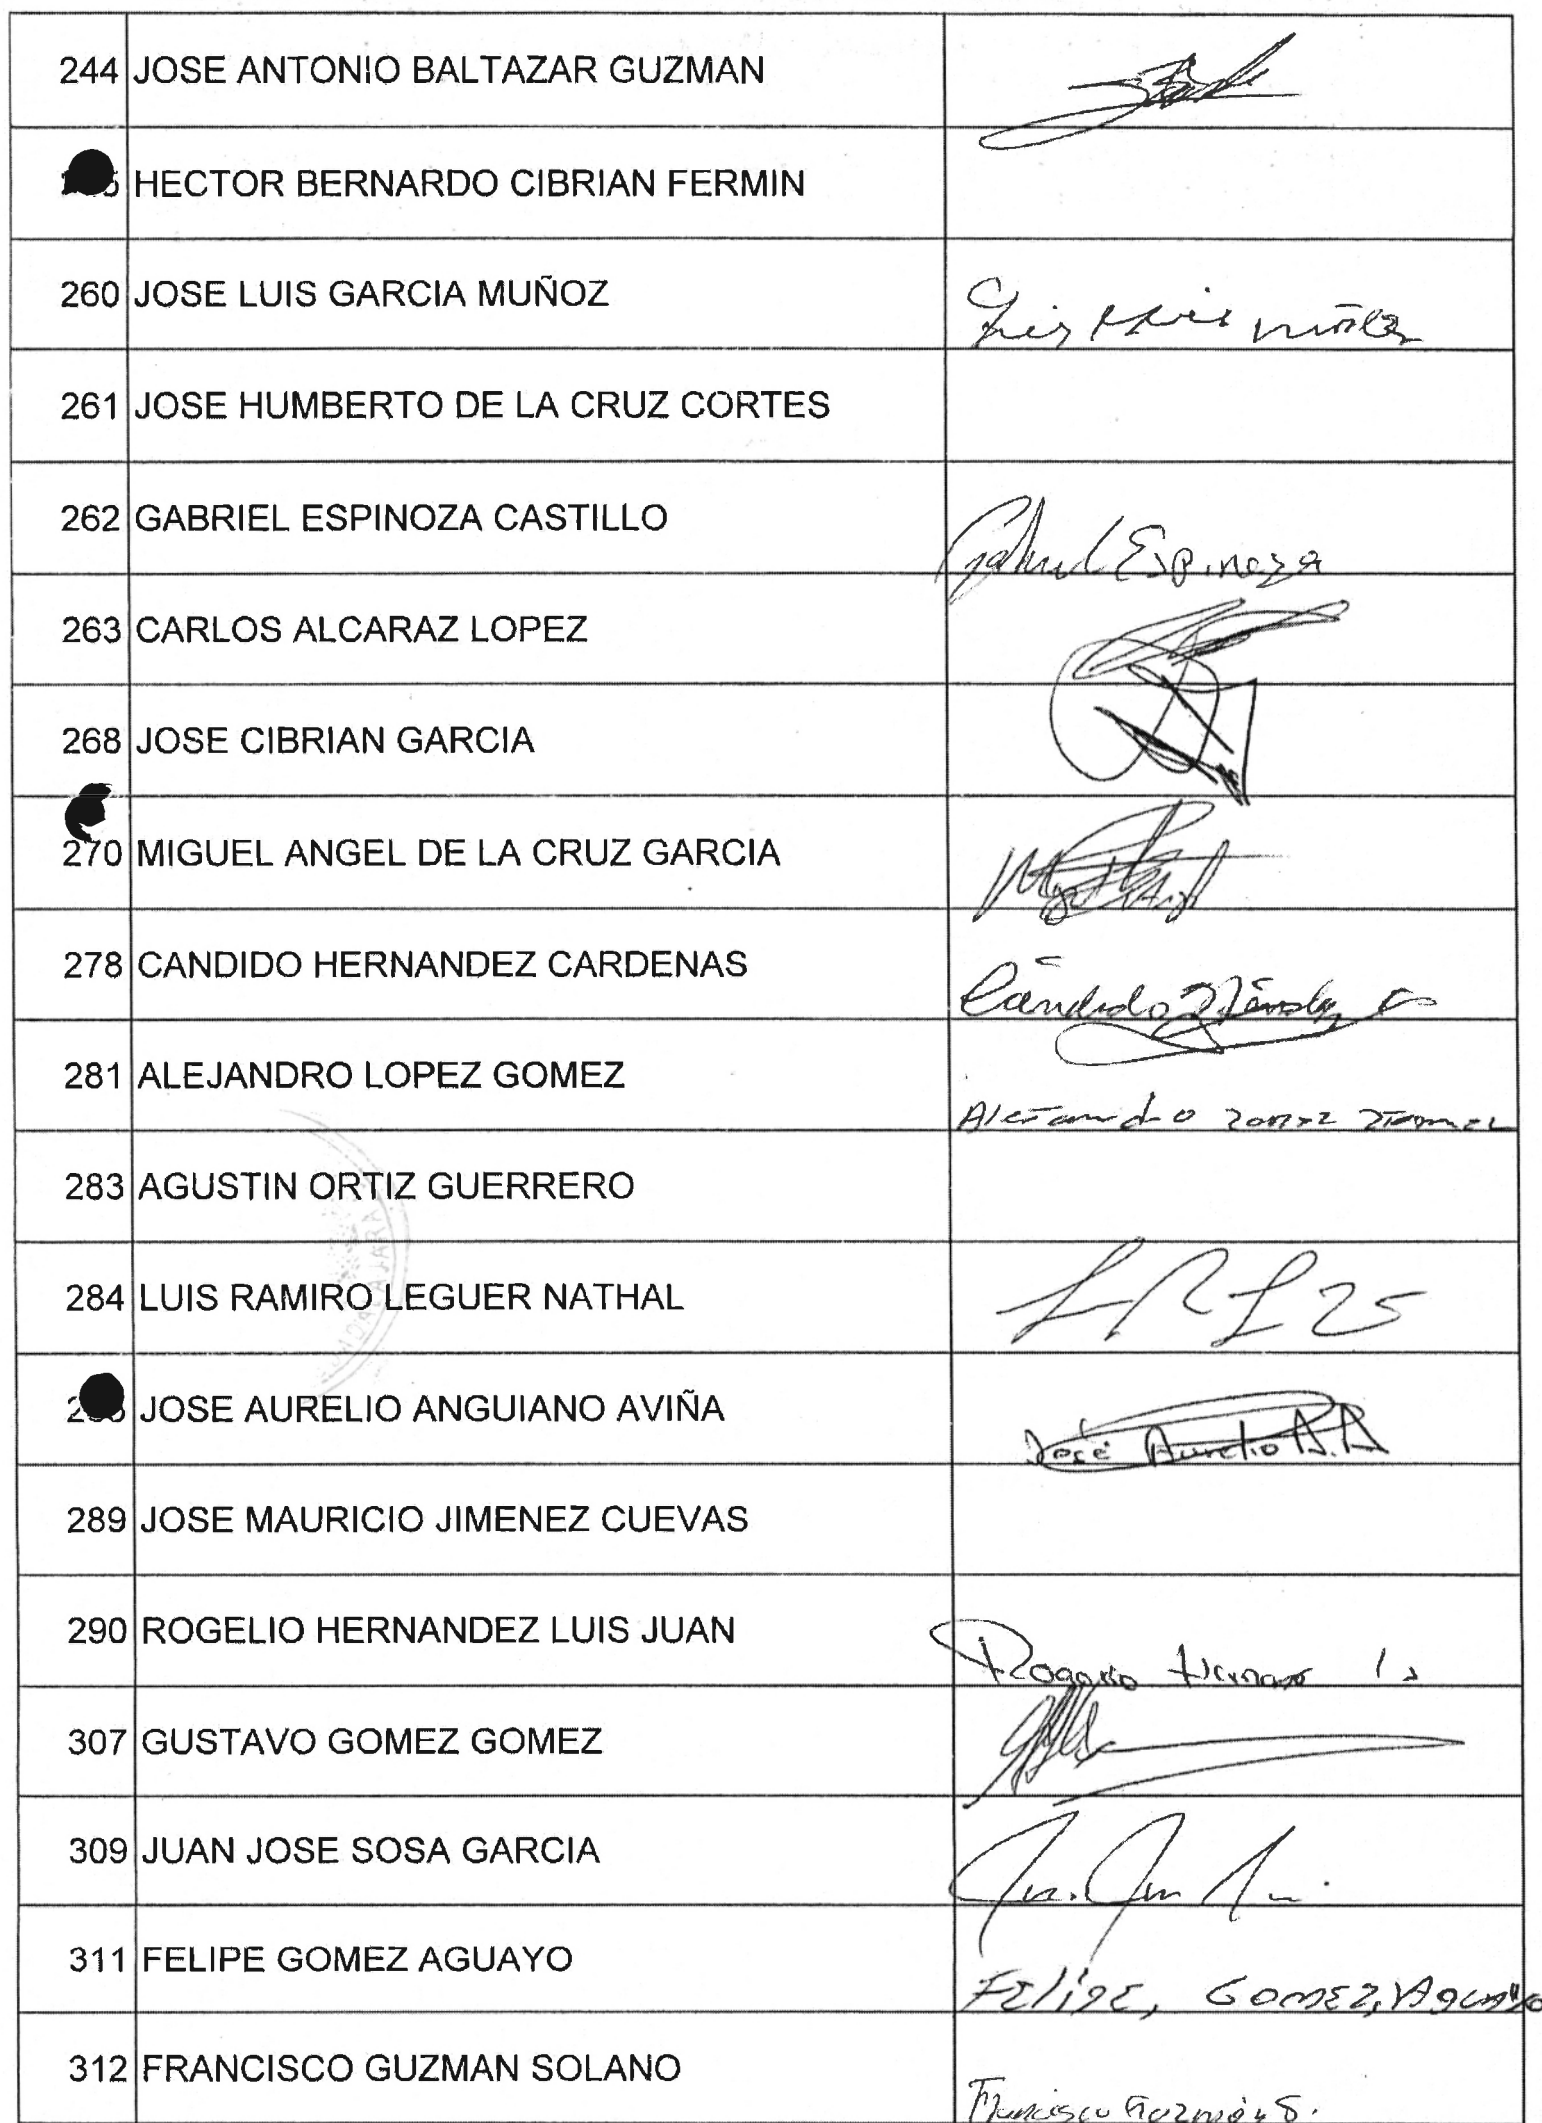 244 JOSE ANTONIO BALTAZAR GUZMAN
HECTOR BERNARDO CIBRIAN FERMIN
260 JOSE LUIS GARCIA MUÑOZ
261 JOSE HUMBERTO DE LA CRUZ CORTES
262 GABRIEL ESPINOZA CASTILLO
Gabriel Espinoza
263 CARLOS ALCARAZ LOPEZ
268 JOSE CIBRIAN GARCIA
270 MIGUEL ANGEL DE LA CRUZ GARCIA
278 CANDIDO HERNANDEZ CARDENAS
Cándido
281 ALEJANDRO LOPEZ GOMEZ
283 AGUSTIN ORTIZ GUERRERO
284 LUIS RAMIRO LEGUER NATHAL
JOSE AURELIO ANGUIANO AVIÑA
José Aurelio A.A
289 JOSE MAURICIO JIMENEZ CUEVAS
290 ROGELIO HERNANDEZ LUIS JUAN
307 GUSTAVO GOMEZ GOMEZ
309 JUAN JOSE SOSA GARCIA
311 FELIPE GOMEZ AGUAYO
FELIPE, GOMEZ, AGUAYO
312 FRANCISCO GUZMAN SOLANO
Francisco Guzmán S.